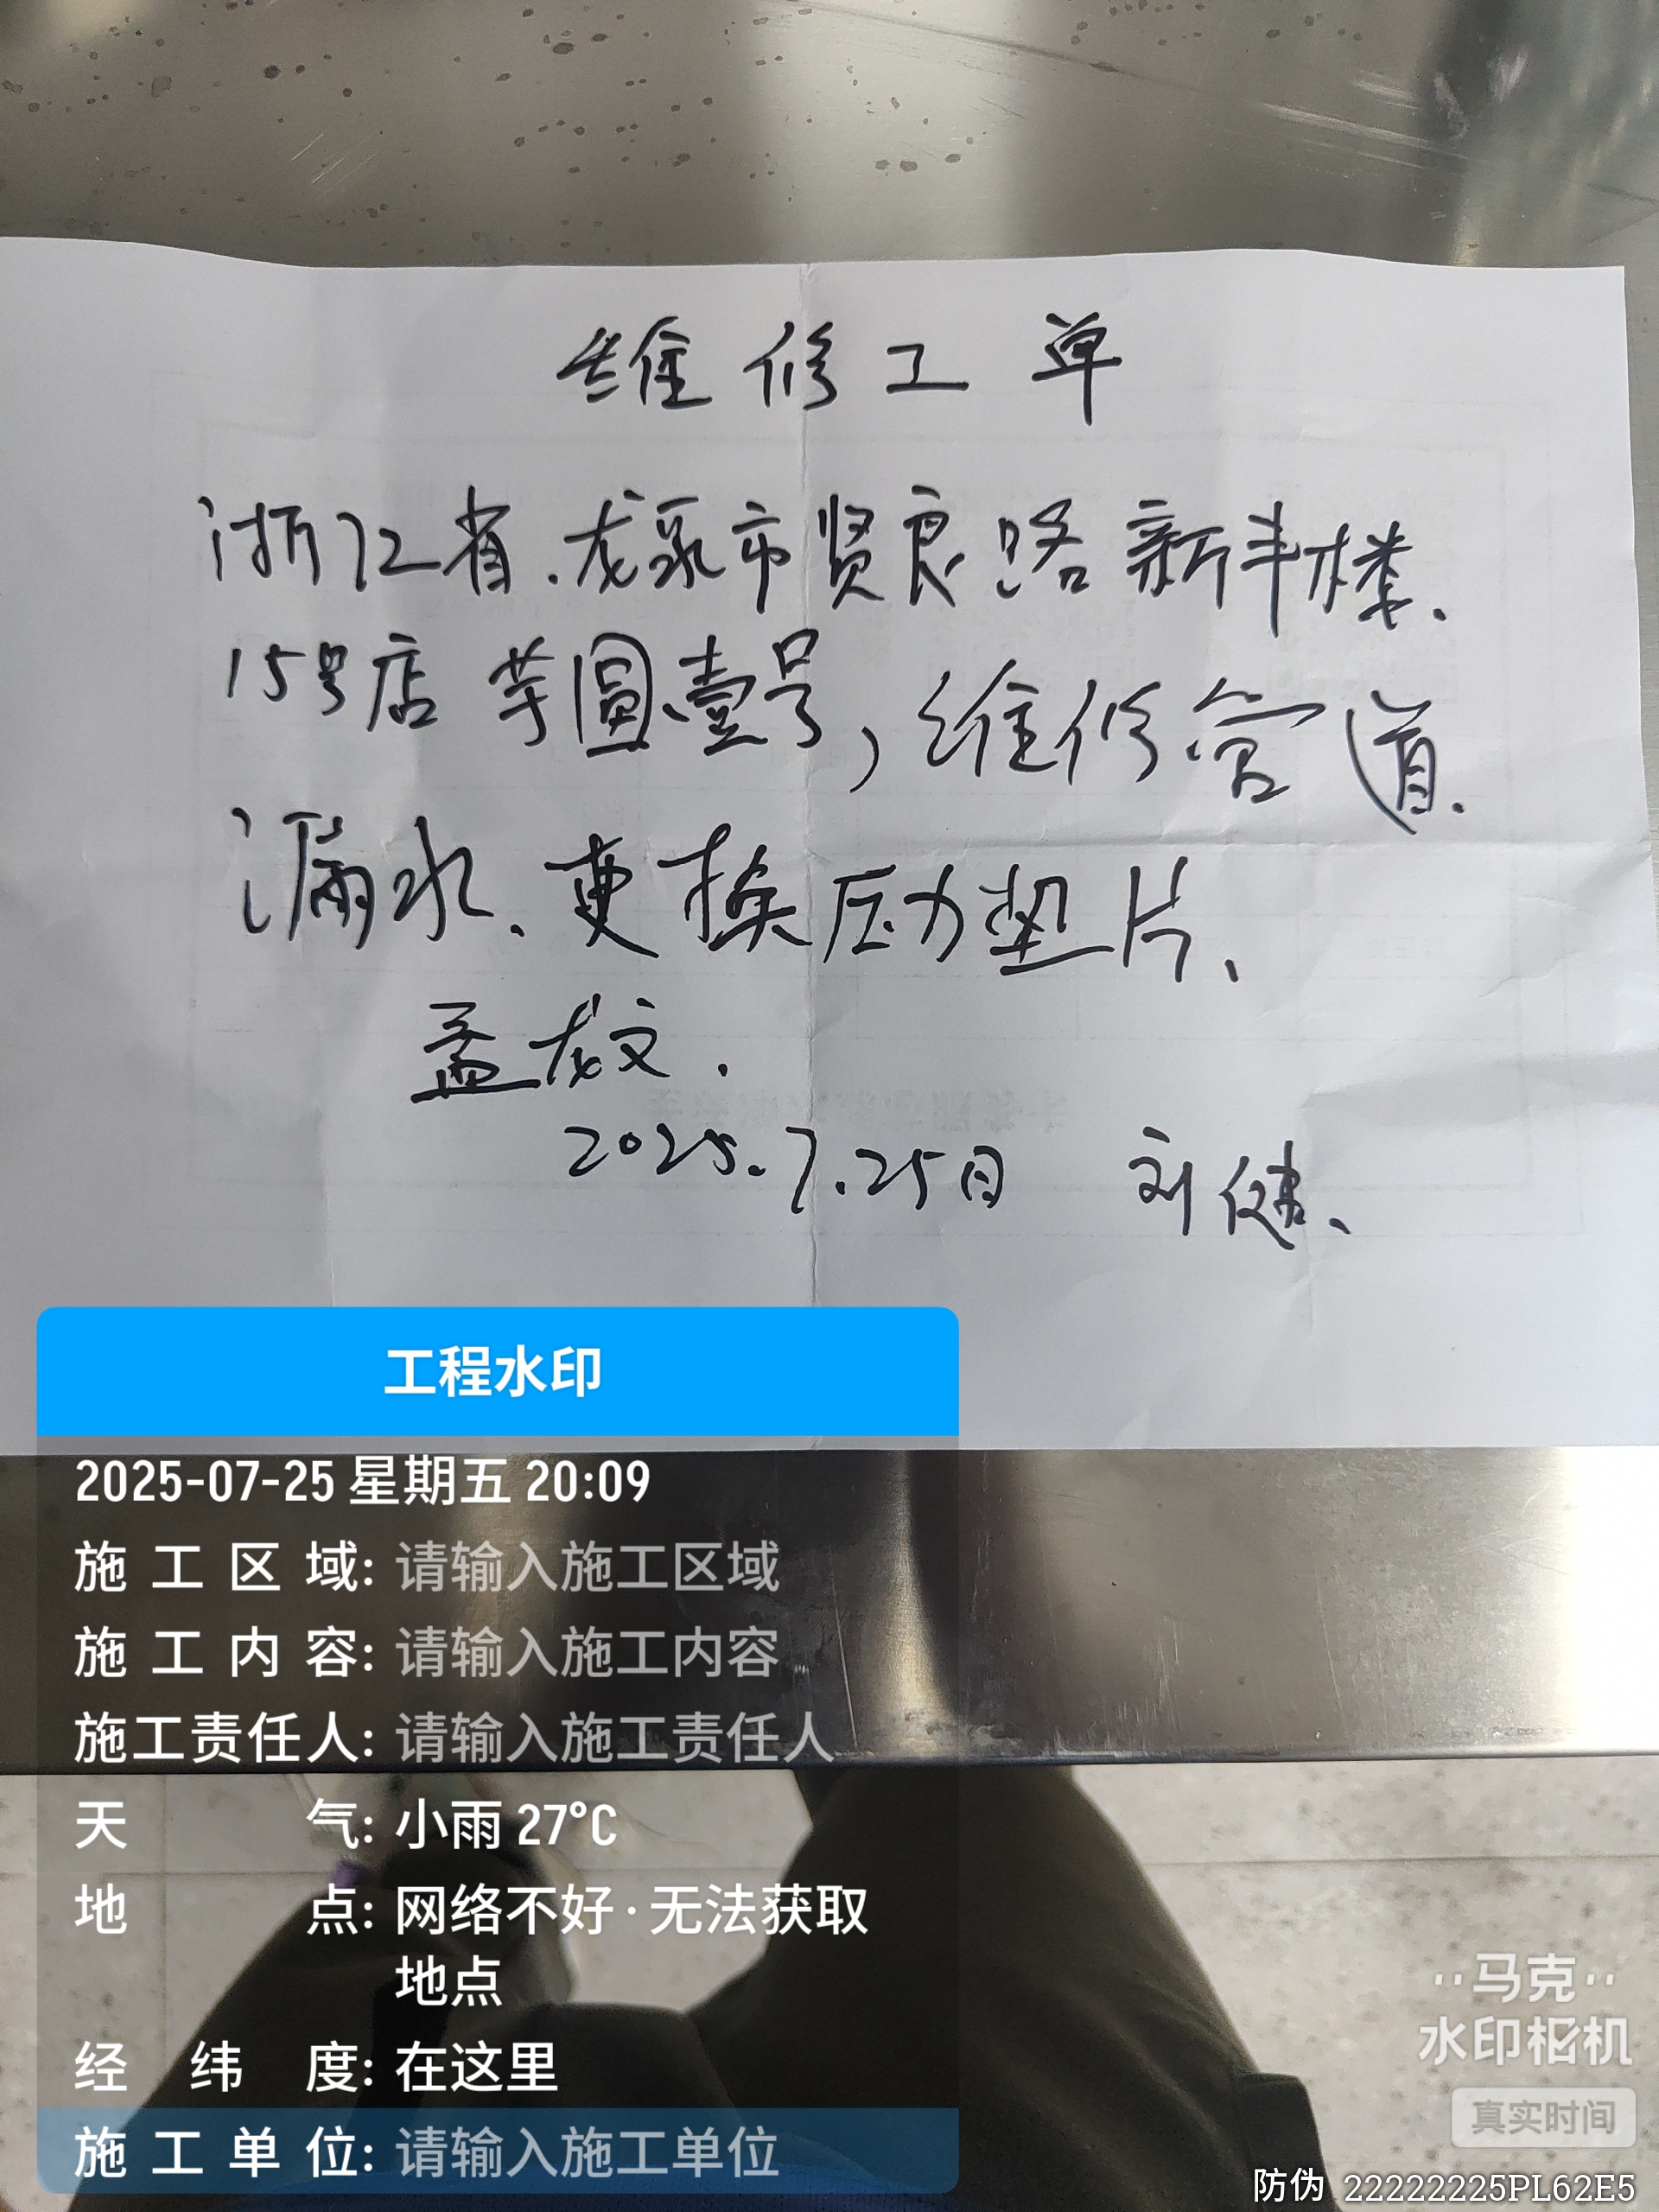 维修工单
浙江省.龙泉市贤良路新丰楼、
15号店 芋圆壹号,维修管道.
漏水、更换压力垫片、
孟龙文.
2025.7.25日 刘健、
工程水印
2025-07-25 星期五 20:09
施工区域: 请输入施工区域
施工内容: 请输入施工内容
施工责任人: 请输入施工责任人
天气: 小雨 27℃
地点: 网络不好·无法获取
地点
经纬度: 在这里
施工单位: 请输入施工单位
马克
水印相机
真实时间
防伪 22222225PL62E5